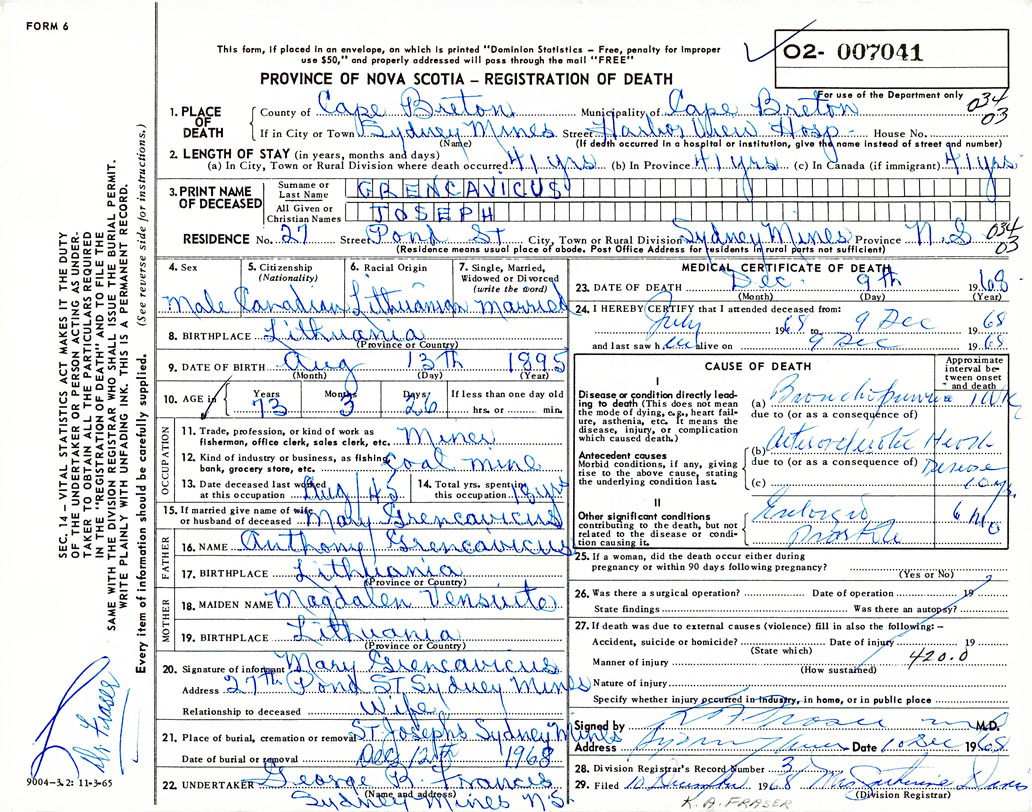 FORM 6
This form, if placed in an envelope, on which is printed "Dominion Statistics – Free, penalty for improper
use $50," and properly addressed will pass through the mail "FREE"
O2- 007041
PROVINCE OF NOVA SCOTIA – REGISTRATION OF DEATH
For use of the Department only
034
03
1. PLACE OF DEATH
County of Cape Breton Municipality of Cape Breton
If in City or Town Sydney Mines Street Harbor View Hosp. House No.
(Name) (If death occurred in a hospital or institution, give the name instead of street and number)
2. LENGTH OF STAY (in years, months and days)
(a) In City, Town or Rural Division where death occurred 41 yrs (b) In Province 41 yrs (c) In Canada (if immigrant) 41 yrs.
3. PRINT NAME OF DECEASED
Surname or Last Name GRENCAVICUS
All Given or Christian Names JOSEPH
RESIDENCE No. 27 Street Pond St City, Town or Rural Division Sydney Mines Province N.S
034
03
(Residence means usual place of abode. Post Office Address for residents in rural parts not sufficient)
4. Sex 5. Citizenship (Nationality) 6. Racial Origin 7. Single, Married, Widowed or Divorced (write the word)
Male Canadian Lithuanian Married
8. BIRTHPLACE Lithuania
(Province or Country)
9. DATE OF BIRTH Aug 13th 1895
(Month) (Day) (Year)
10. AGE in Years 73 Months 3 Days 26 If less than one day old
hrs. or min.
OCCUPATION
11. Trade, profession, or kind of work as fisherman, office clerk, sales clerk, etc. Miner
12. Kind of industry or business, as fishing, bank, grocery store, etc. Coal mine
13. Date deceased last worked at this occupation Aug /45 14. Total yrs. spent in this occupation 18 yrs
15. If married give name of wife or husband of deceased Mary Grencavicus
FATHER
16. NAME Anthony Grencavicus
17. BIRTHPLACE Lithuania
(Province or Country)
MOTHER
18. MAIDEN NAME Magdalen
19. BIRTHPLACE Lithuania
(Province or Country)
20. Signature of informant Mary Grencavicus
Address 27th Pond ST Sydney Mines
Relationship to deceased Wife
21. Place of burial, cremation or removal St Josephs Sydney Mines
Date of burial or removal Dec 12th 1968
22. UNDERTAKER George B. Francis
(Name and address)
Sydney Mines N.S.
MEDICAL CERTIFICATE OF DEATH
23. DATE OF DEATH Dec. 9th 1968
(Month) (Day) (Year)
24. I HEREBY CERTIFY that I attended deceased from:
July 1968 to 9 Dec 1968
and last saw him alive on 9 Dec 1968
CAUSE OF DEATH
Approximate interval between onset and death
I
Disease or condition directly leading to death (This does not mean the mode of dying, e.g., heart failure, asthenia, etc. It means the disease, injury, or complication which caused death.)
(a) Bronchopneumonia 1 wk
due to (or as a consequence of)
Antecedent causes
Morbid conditions, if any, giving rise to the above cause, stating the underlying condition last.
(b) Heart
due to (or as a consequence of) Disease
(c) 10 yrs.
II
Other significant conditions contributing to the death, but not related to the disease or condition causing it.
Prostate 6 mo
25. If a woman, did the death occur either during pregnancy or within 90 days following pregnancy?
(Yes or No)
26. Was there a surgical operation? Date of operation 19
State findings Was there an autopsy?
27. If death was due to external causes (violence) fill in also the following: –
Accident, suicide or homicide? Date of injury 19
(State which)
Manner of injury 420.0
(How sustained)
Nature of injury
Specify whether injury occurred in industry, in home, or in public place
Signed by R A Fraser M.D.
Address Sydney Mines Date 10 Dec 1968
28. Division Registrar's Record Number 3
29. Filed 10 December 1968
(Division Registrar)
R. A. FRASER
SEC. 14 – VITAL STATISTICS ACT MAKES IT THE DUTY
OF THE UNDERTAKER OR PERSON ACTING AS UNDER-
TAKER TO OBTAIN ALL THE PARTICULARS REQUIRED
IN THE "REGISTRATION OF DEATH" AND TO FILE THE
SAME WITH THE DIVISION REGISTRAR WHO SHALL ISSUE THE BURIAL PERMIT.
WRITE PLAINLY WITH UNFADING INK. THIS IS A PERMANENT RECORD.
Every item of information should be carefully supplied. (See reverse side for instructions.)
Dr Fraser
9004-3.2: 11-3-65